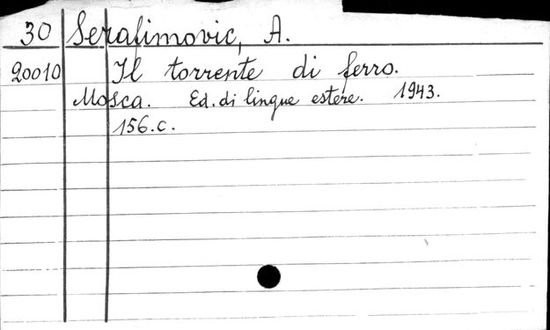 30 Serafimovic, A.
20010 Il torrente di ferro.
Mosca. Ed. di lingue estere. 1943.
156.c.